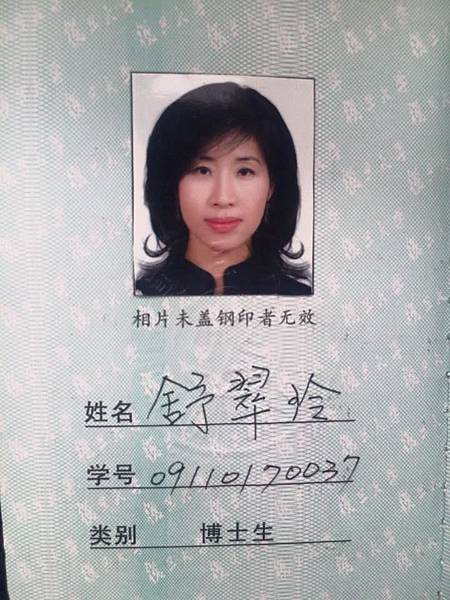 相片未盖钢印者无效
姓名 舒翠玲
学号 09110170037
类别 博士生